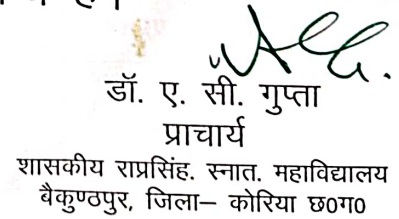 डॉ. ए. सी. गुप्ता
प्राचार्य
शासकीय राप्रसिंह. स्नात. महाविद्यालय
बैकुण्ठपुर, जिला– कोरिया छ0ग0